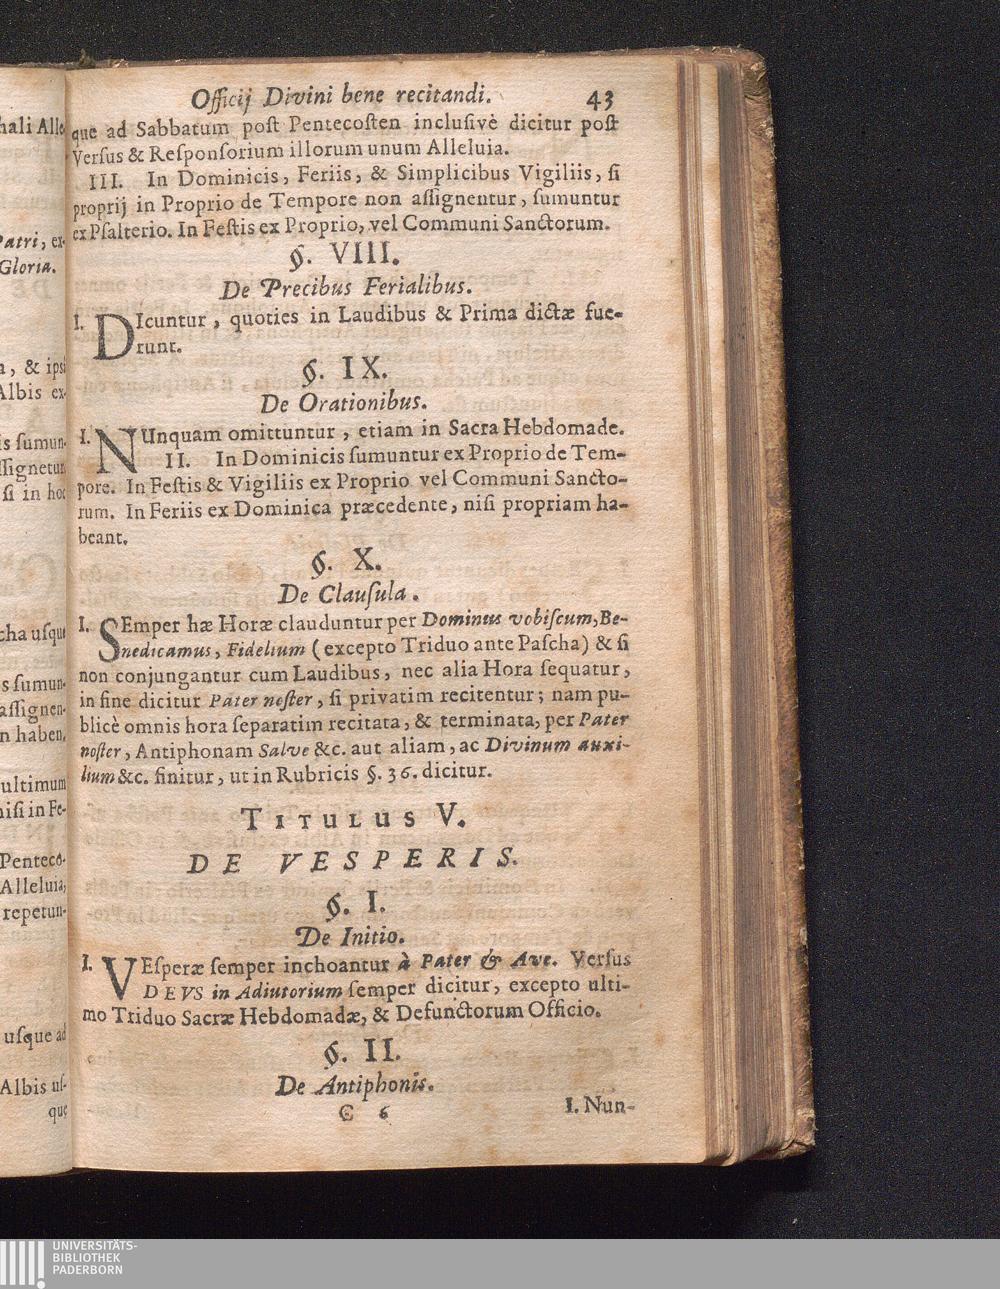 Officij Divini bene recitandi. 43
que ad Sabbatum poſt Pentecoſten incluſivè dicitur poſt
Verſus & Reſponſorium illorum unum Alleluia.
III. In Dominicis, Feriis, & Simplicibus Vigiliis, ſi
proprij in Proprio de Tempore non aſſignentur, ſumuntur
ex Pſalterio. In Feſtis ex Proprio, vel Communi Sanctorum.
§. VIII.
De Precibus Ferialibus.
I. DIcuntur, quoties in Laudibus & Prima dictæ fue-
runt.
§. IX.
De Orationibus.
I. NUnquam omittuntur, etiam in Sacra Hebdomade.
II. In Dominicis ſumuntur ex Proprio de Tem-
pore. In Feſtis & Vigiliis ex Proprio vel Communi Sancto-
rum. In Feriis ex Dominica præcedente, niſi propriam ha-
beant.
§. X.
De Clauſula.
I. SEmper hæ Horæ clauduntur per Dominus vobiſcum, Be-
nedicamus, Fidelium (excepto Triduo ante Paſcha) & ſi
non conjungantur cum Laudibus, nec alia Hora ſequatur,
in fine dicitur Pater noſter, ſi privatim recitentur; nam pu-
blicè omnis hora ſeparatim recitata, & terminata, per Pater
noſter, Antiphonam Salve &c. aut aliam, ac Divinum auxi-
lium &c. finitur, ut in Rubricis §. 36. dicitur.
TITULUS V.
DE VESPERIS.
§. I.
De Initio.
I. VEſperæ ſemper inchoantur à Pater & Ave. Verſus
DEVS in Adiutorium ſemper dicitur, excepto ulti-
mo Triduo Sacræ Hebdomadæ, & Defunctorum Officio.
§. II.
De Antiphonis.
C 6 I. Nun-
hali Alle
Patri, ex-
Gloria.
a, & ipſi
Albis ex-
is ſumun-
ſſignetur
ſi in hoc
cha uſque
s ſumun-
aſſignen-
n haben,
ultimum
niſi in Fe-
Penteco-
Alleluia,
repetun-
uſque ad
Albis uſ-
que
UNIVERSITÄTS-
BIBLIOTHEK
PADERBORN